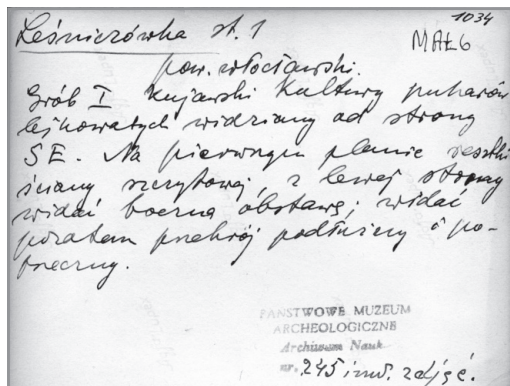 1034
Leśniczówka st. 1
MAŁ6
pow. włocławski.
Grób I kujawski Kultury pucharów
lejkowatych widziany od strony
SE. Na pierwszym planie resztki
ściany szczytowej, z lewej strony
widać boczną obstawę; widać
pozatem przekrój podłużny i po-
przeczny.
PAŃSTWOWE MUZEUM
ARCHEOLOGICZNE
Archiwum Nauk.
nr. 245 inw. zdjęć.